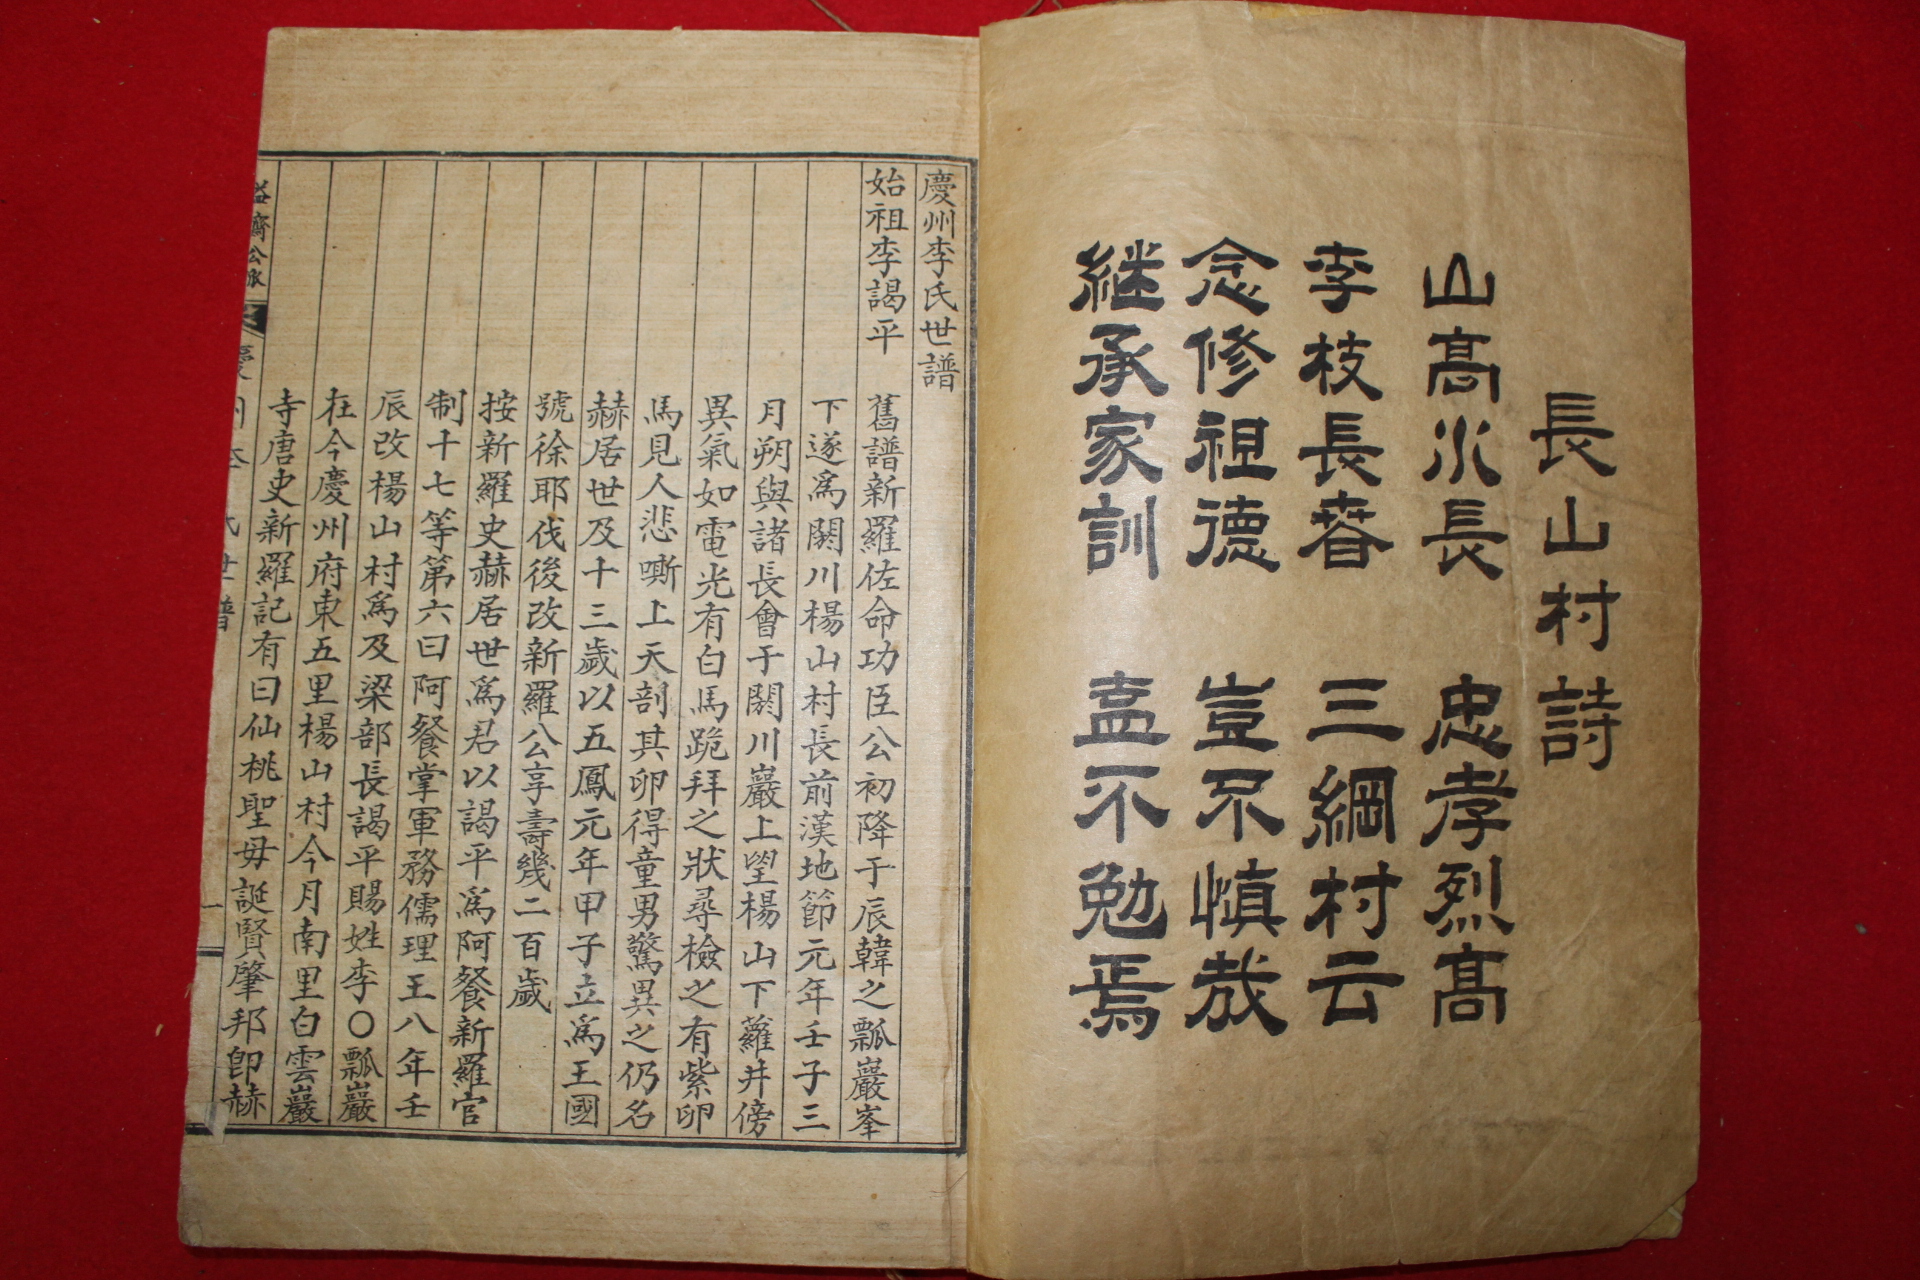 長山村詩
山高水長 忠孝烈高
李枝長春 三綱村云
念修祖德 豈不慎哉
継承家訓 盍不勉焉
慶州李氏世譜
始祖李謁平 舊譜新羅佐命功臣公初降于辰韓之瓢巖峯
下遂爲閼川楊山村長前漢地節元年壬子三
月朔與諸長會于閼川巖上望楊山下蘿井傍
異氣如電光有白馬跪拜之狀尋檢之有紫卵
馬見人悲嘶上天剖其卵得童男驚異之仍名
赫居世及十三歲以五鳳元年甲子立爲王國
號徐耶伐後改新羅公享壽幾二百歲
按新羅史赫居世爲君以謁平爲阿餐新羅官
制十七等第六曰阿餐掌軍務儒理王八年壬
辰改楊山村爲及梁部長謁平賜姓李〇瓢巖
在今慶州府東五里楊山村今月南里白雲巖
寺唐史新羅記有曰仙桃聖母誕賢肇邦卽赫
益齋公派 慶州李氏世譜 一